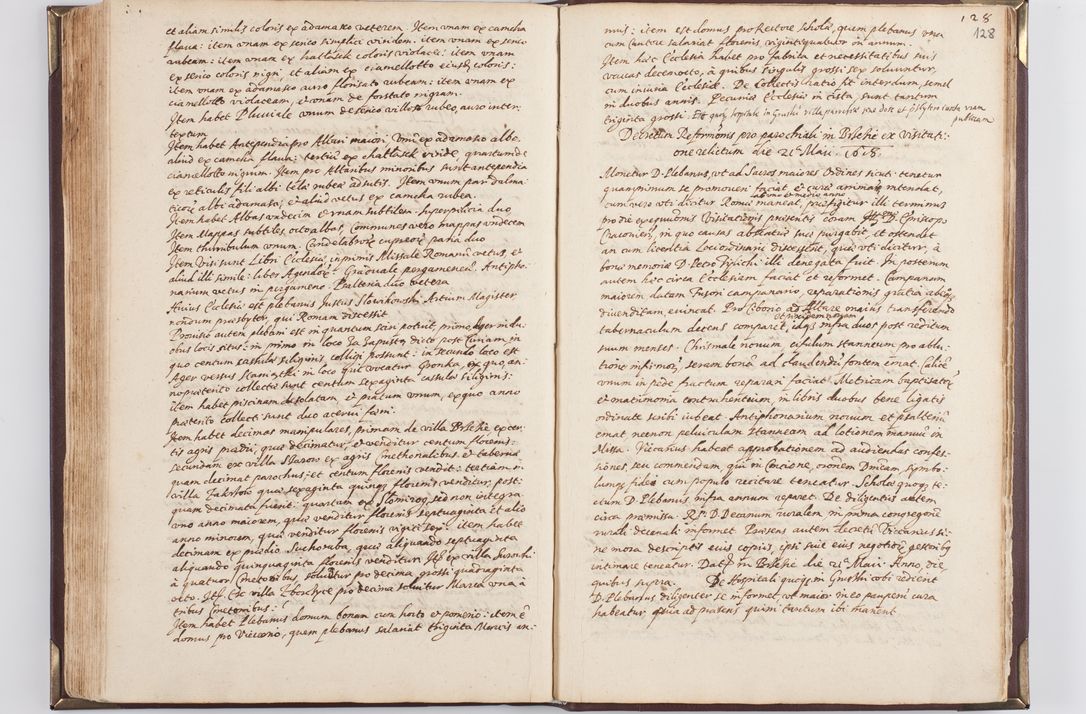 et aliam similis coloris ex adamasco veterem. Item vnam ex camcha
flaua: item vnam ex serico simplici viridem. item vnam ex serico
rubeam: item vnam ex hatłasek coloris violacei: item vnam
ex serico coloris nigri, et aliam ex ciamellotto eiusdem coloris:
item vnam ex adamasco auro florisato rubeam: item vnam ex
ciamellotto violaceam, et vnam de forstato nigram.
Item habet Pluuiale vnum de serico villoso rubeo, auro inter:
textum
Item habet Antependia pro Altari maiori, Vnum ex adamasco albo,
aliud ex camcha flaua: tertium ex chatłasek viride, quartum de
ciamellotto nigrum. Item pro Altaribus minoribus sunt antependia
ex reticulis fili albi tela rubea adsutis. Item vnum par dalma
ticarum albi adamasci, et aliud vetus ex camcha rubea.
Item habet Albas vndecim et vnam subtilem. Superpelicia duo
Item Mappas subtiles octo albas, Communes vero mappas vndecem
Item thuribulum vnum. Candelabrorum cupreorum paria duo
Item Visi sunt Libri Ecclesiae, inprimis Missale Romanum vetus, et
aliud illi simile: liber Agendorum: Graduale pergameneum. Antipho:
narium vetus in pergameno. Psalteria duo vetera
Huius Ecclesiae est plebanus Iustus Słowikowski Artium Magister
nondum presbyter, qui Romam discessit
Prouisio autem plebani est in quantum sciri potuit, primo Ager in du:
obus locis situs: in primo in loco Za Sapustą dicto post Curiam in
quo centum cassulae siliginis, colligi possunt: in secundo loco est
Ager versus Staniątki in loco qui vocatur Gronka, ex quo, an:
no praeterito collectae sunt centum sexaginta cassulae siliginis:
item habet piscinam desolatam, et pratum vnum, ex quo anno
praeterito collecti sunt duo acerui faeni.
Item habet decimas manipulares, primam de villa Brzezie ex cer:
tis agris praedii, quae decimatur, et venditur centum florenis:
secundam ex villa Starow ex agris Cmethonalibus et tabernae
quam decimat parochus, et centum florenis vendit: tertiam in
villa Zakrzow quae sexaginta quinque florenis venditur, post:
quam decimata fuerit: quartam ex Słomirog sed non integra
vno anno maiorem, quae venditur florenis septuaginta et alio
anno minorem, quae venditur florenis viginti sex: item habet
decimam ex praedio Suchoraba, quae aliquando septuaginta
aliquando quinquaginta florenis venditur. Item ex villa Surochi
à quatuor Cmetonibus soluitur pro decima grossi quadraginta
octo. Item Ex villa Zborchyce pro decima soluitur Marca vna à
tribus Cmetonibus:
Item habet Plebanus domum bonam cum horto et pomerio: item est
domus pro Vicario, quem plebanus salariat triginta Marcis an:

128
128
nuis: item est domus pro Rectore scholae, quem plebanus vna
cum Cantore salariat florenis viginti quatuor in annum.
Item haec Ecclesia habet pro fabrica et necessitatibus suis
vaccas decem octo, à quibus singulis grossi sex soluuntur,
cum iniuria Ecclesiae. De collectis ratio fit interdum, semel
in duobus annis. Pecuniae Ecclesiae in Cista sunt tantum
triginta grossi. Est quoque hospitale in Gruszki villa parrochiae sine dote et Ecclesiola iuxta viam
publicam
Decretum Reformationis pro parochiali in Brzezie ex Visitati:
one relictum die 21 Maii. 1618.
Monetur D. Plebanus, vt ad Sacros maiores Ordines sicuti tenetur
quamprimum se promoueri faciat et curae animarum intendat,
cum vero vti dicitur Romae maneat, praefigitur illi terminus
primo et medio anno
pro die expeditionis Visitationis praesentis coram Illmo D. Episcopo
Cracouien, in quo causas absentiae suae purgabit, et ostendet
an cum licentia Loci ordinarii discesserit, quae vti dicitur, à
bonae memoriae D. Petro Tylicki illi denegata fuit. In posterum
autem haec circa Ecclesiam faciat et reformet. Campanam
maiorem datam Fusori campanario, reparationis gratia ab eius
diuenditam euincat. Pro Ciborio ad Altare maius transferendo
tabernaculum decens comparet, idque infra duos post reditum
suum menses. Chrismale nouum, vasculum stanneum pro ablu:
tione infirmorum, seram bonam ad claudendum fontem emat. Calicem
vnum in pede fractum reparari faciat. Metricam baptisatorum
et matrimonia contrahentium, in libris duobus bene ligatis
ordinate scribi iubeat. Antiphonarium nouum et psalterium
emat necnon peluiculam stanneam ad lotionem manuum in
Missa. Vicarius habeat approbationem ad audiendas confes:
siones, seu commendam, qui in Concione, orationem Dnicam symbo:
lumque fidei cum populo recitare teneatur. Scholae quoque te:
ctum D. Plebanus infra annum reparet. De diligentiis autem
circa praemissa Rdum D. Decanum ruralem in prima congregatione
rurali decanali informet. Praesens autem decretum Vicarius si:
ne mora descriptis eius copiis, ipsi siue eius negotiorum gestoribus
intimare teneatur. Datum in Brzezie die 21 Maii Anno, die
quibus supra. De Hospitali quoque in Gruszki vbi redierit
D. Plebanus diligenter se informet, vt maior in eo pauperum cura
habeatur, quia ad praesens quinque tantum ibi manent